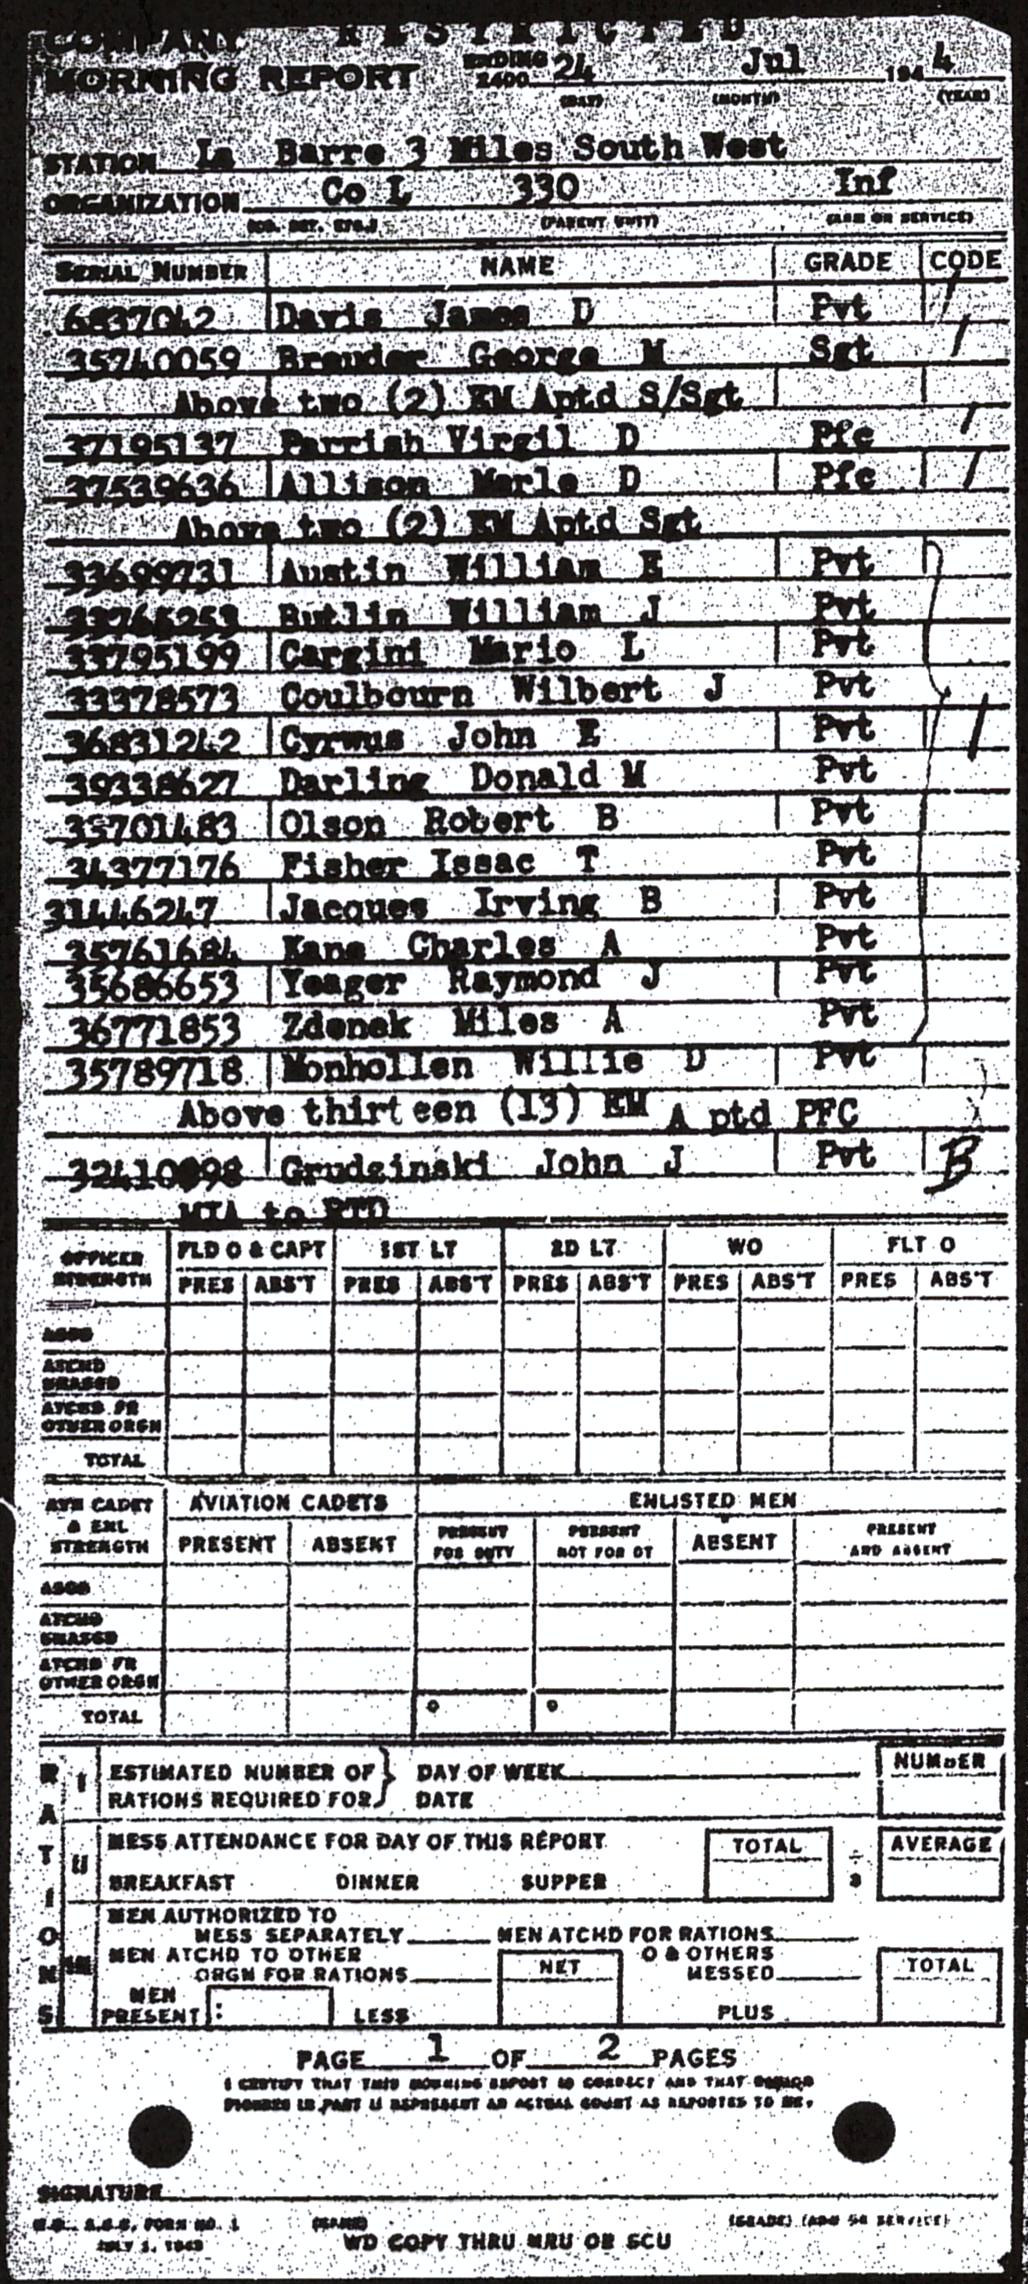 RESTRICTED
COMPANY
MORNING REPORT ENDING 2400 24 Jul 1944
(DAY) (MONTH) (YEAR)
STATION La Barre 3 Miles South West
ORGANIZATION Co L 330 Inf
(CO. DET. ETC.) (PARENT UNIT) (ARM OR SERVICE)
SERIAL NUMBER NAME GRADE CODE
6837042 Davis James D Pvt /
35740059 Breuder George M Sgt /
Above two (2) EM Aptd S/Sgt
37195137 Parrish Virgil D Pfc /
37539636 Allison Merle D Pfc /
Above two (2) EM Aptd Sgt
33699731 Austin William E Pvt
Butlin William J Pvt
33795199 Cargini Mario L Pvt
33378573 Coulbourn Wilbert J Pvt
36831242 Cyrwus John E Pvt /
39338627 Darling Donald M Pvt
35701483 Olson Robert B Pvt
34377176 Fisher Issac T Pvt
31446247 Jacques Irving B Pvt
35761684 Kane Charles A Pvt
35686653 Yeager Raymond J Pvt
36771853 Zdenek Miles A Pvt
35789718 Monhollen Willie D Pvt
Above thirteen (13) EM A ptd PFC
32410098 Grudginski John J Pvt B
MIA to RTD
OFFICER STRENGTH FLD O & CAPT 1ST LT 2D LT WO FLT O
PRES ABS'T PRES ABS'T PRES ABS'T PRES ABS'T PRES ABS'T
ASGD
ATCHD UNASGD
ATCHD FR OTHER ORGN
TOTAL
AVN CADET & ENL STRENGTH AVIATION CADETS ENLISTED MEN
PRESENT ABSENT PRESENT FOR DUTY PRESENT NOT FOR DT ABSENT PRESENT AND ABSENT
ASGD
ATCHD UNASGD
ATCHD FR OTHER ORGN
TOTAL
RATIONS
I ESTIMATED NUMBER OF RATIONS REQUIRED FOR } DAY OF WEEK NUMBER
DATE
II MESS ATTENDANCE FOR DAY OF THIS REPORT TOTAL ÷ 3 AVERAGE
BREAKFAST DINNER SUPPER
III MEN AUTHORIZED TO
MESS SEPARATELY MEN ATCHD FOR RATIONS
MEN ATCHD TO OTHER ORGN FOR RATIONS NET O & OTHERS MESSED TOTAL
MEN PRESENT : LESS PLUS
PAGE 1 OF 2 PAGES
I CERTIFY THAT THIS MORNING REPORT IS CORRECT AND THAT
FIGURES IN PART II REPRESENT AN ACTUAL COUNT AS REPORTED TO ME.
SIGNATURE
W.D., A.G.O. FORM NO. 1 (NAME) (GRADE) (ARM OR SERVICE)
JULY 1, 1943 WD COPY THRU MRU OR SCU